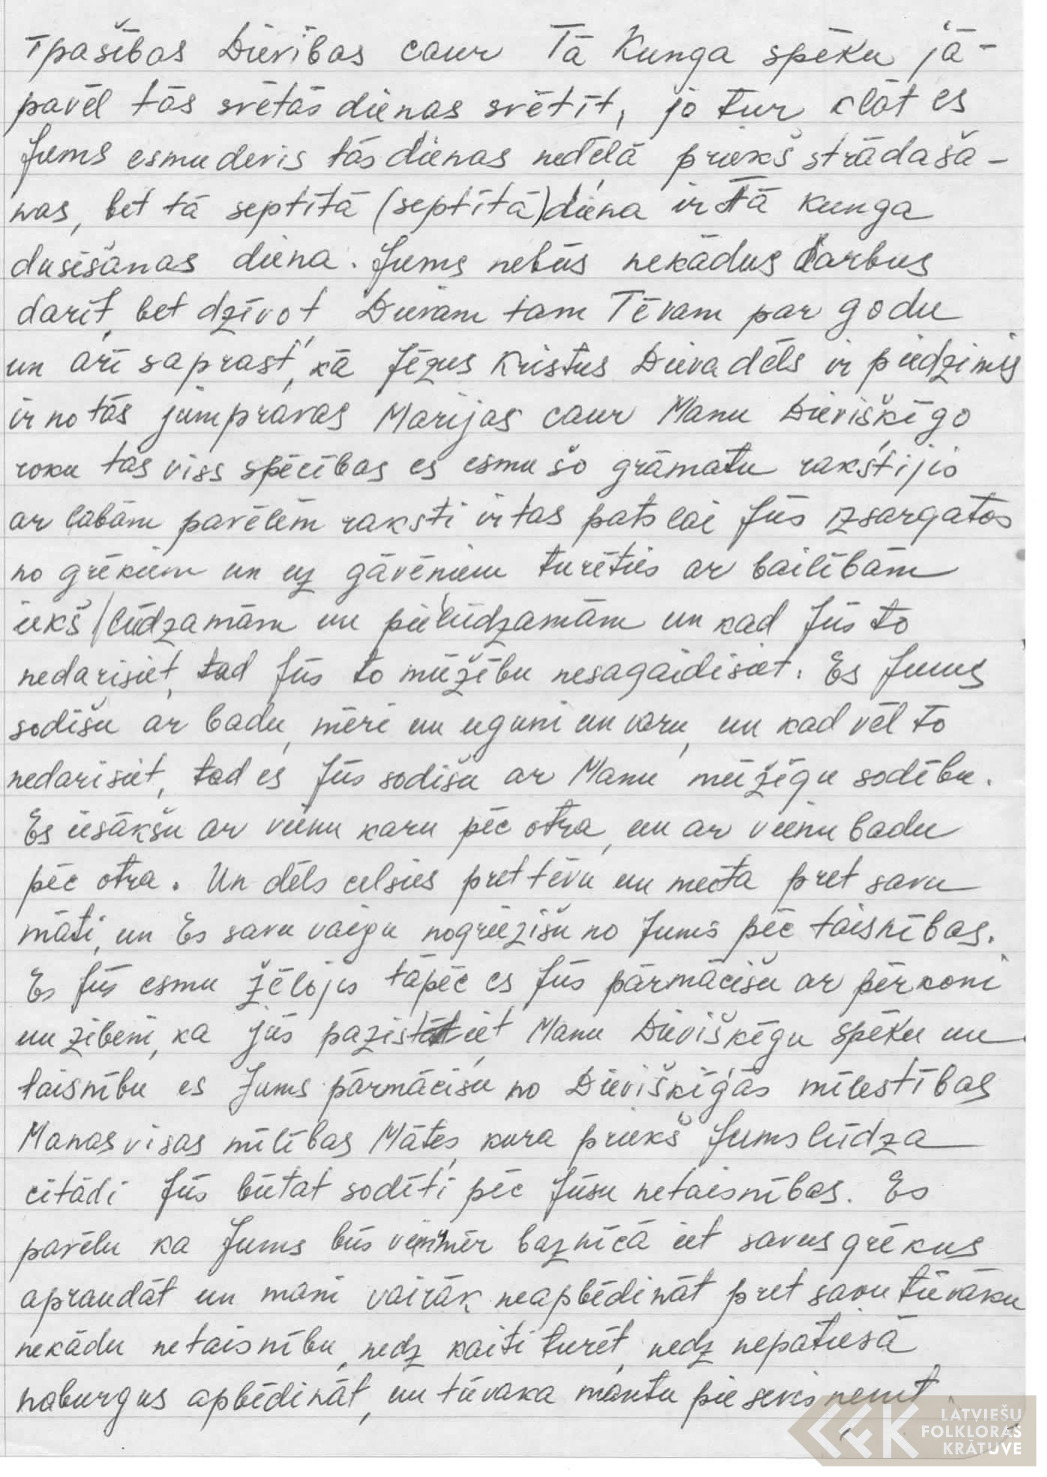 īpašības Dievības caur Tā Kunga spēku jā-
pavēl tās svētās dienas svētīt, jo tur klāt es
Jums esmu devis tās dienas nedēlā priekš strādaša-
nas, bet tā septītā (septītā) diena ir Tā kunga
dusēšanas diena. Jums nebūs nekādus darbus
darīt, bet dzīvot, Dievam tam Tēvam par godu
un arī saprast, kā Jēzus Kristus Dieva dēls ir piedzimis
ir no tās jumpravas Marijas caur Manu Dievišķīgo
roku tās viss spēcības es esmu šo grāmatu rakstijis
ar labām pavēlēm raksti ir tas pats lai Jūs izsargatos
no grēkiem un uz gāvēniem turēties ar bailībām
iekš lūdzamām un pielūdzamām un kad Jūs to
nedarisiet, tad Jūs to mūžību nesagaidisiet. Es Jums
sodišu ar badu, mēri un uguni un varu, un kad vēl to
nedarisiet, tad es Jūs sodišu ar Manu mūžīgu sodību.
Es iesākšu ar vienu karu pēc otra, un ar vienu badu
pēc otra. Un dēls celsies pret tēvu un meita pret savu
māti, un Es savu vaigu nogriezišu no Jums pēc taisnības.
Es Jūs esmu žēlojis tāpēc es Jūs pārmācišu ar pērkoni
un zibeni, ka jūs pazistiet Manu Dievišķīgu spēku un
taisnību es Jums pārmācišu no Dievišķīgās mīlestības
Manas visas mīlības Mātes, kura priekš Jums lūdza
citādi Jūs būtat sodīti pēc Jūsu netaisnības. Es
pavēlu ka Jums būs vienmēr baznīcā iet savus grēkus
apraudāt un mani vairāk neapbēdināt pret savu tūvāku
nekādu netaisnību, nedz kaiti turēt, nedz nepatiesā
naburgus apbēdināt, un tūvaka mantu pie sevis ņemt.
LATVIEŠU
FOLKLORAS
KRĀTUVE